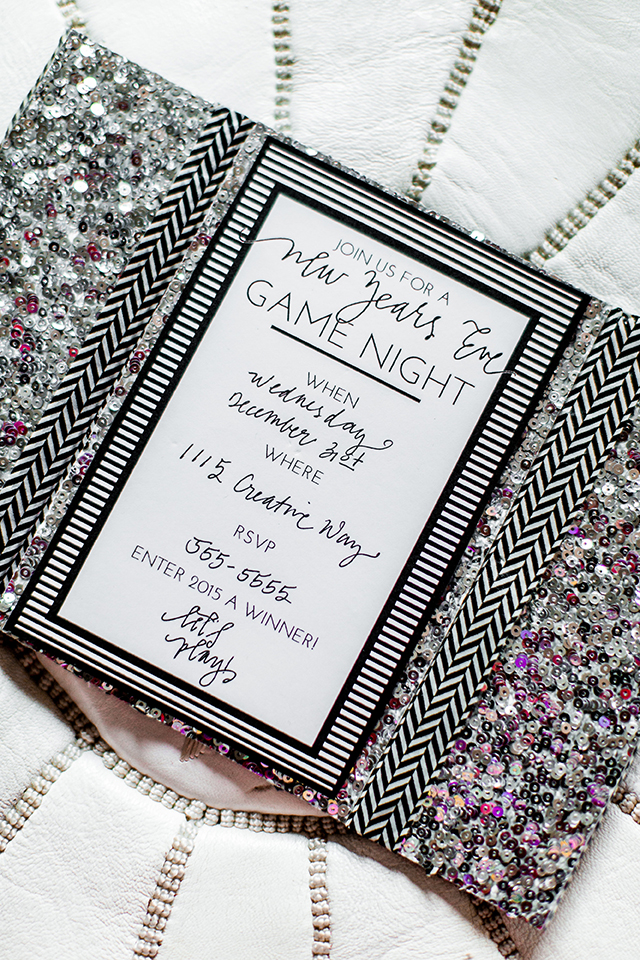 JOIN US FOR A
New Years Eve
GAME NIGHT
WHEN
Wednesday
December 31st
WHERE
1115 Creative Way
RSVP
555-5555
ENTER 2015 A WINNER!
let's
play